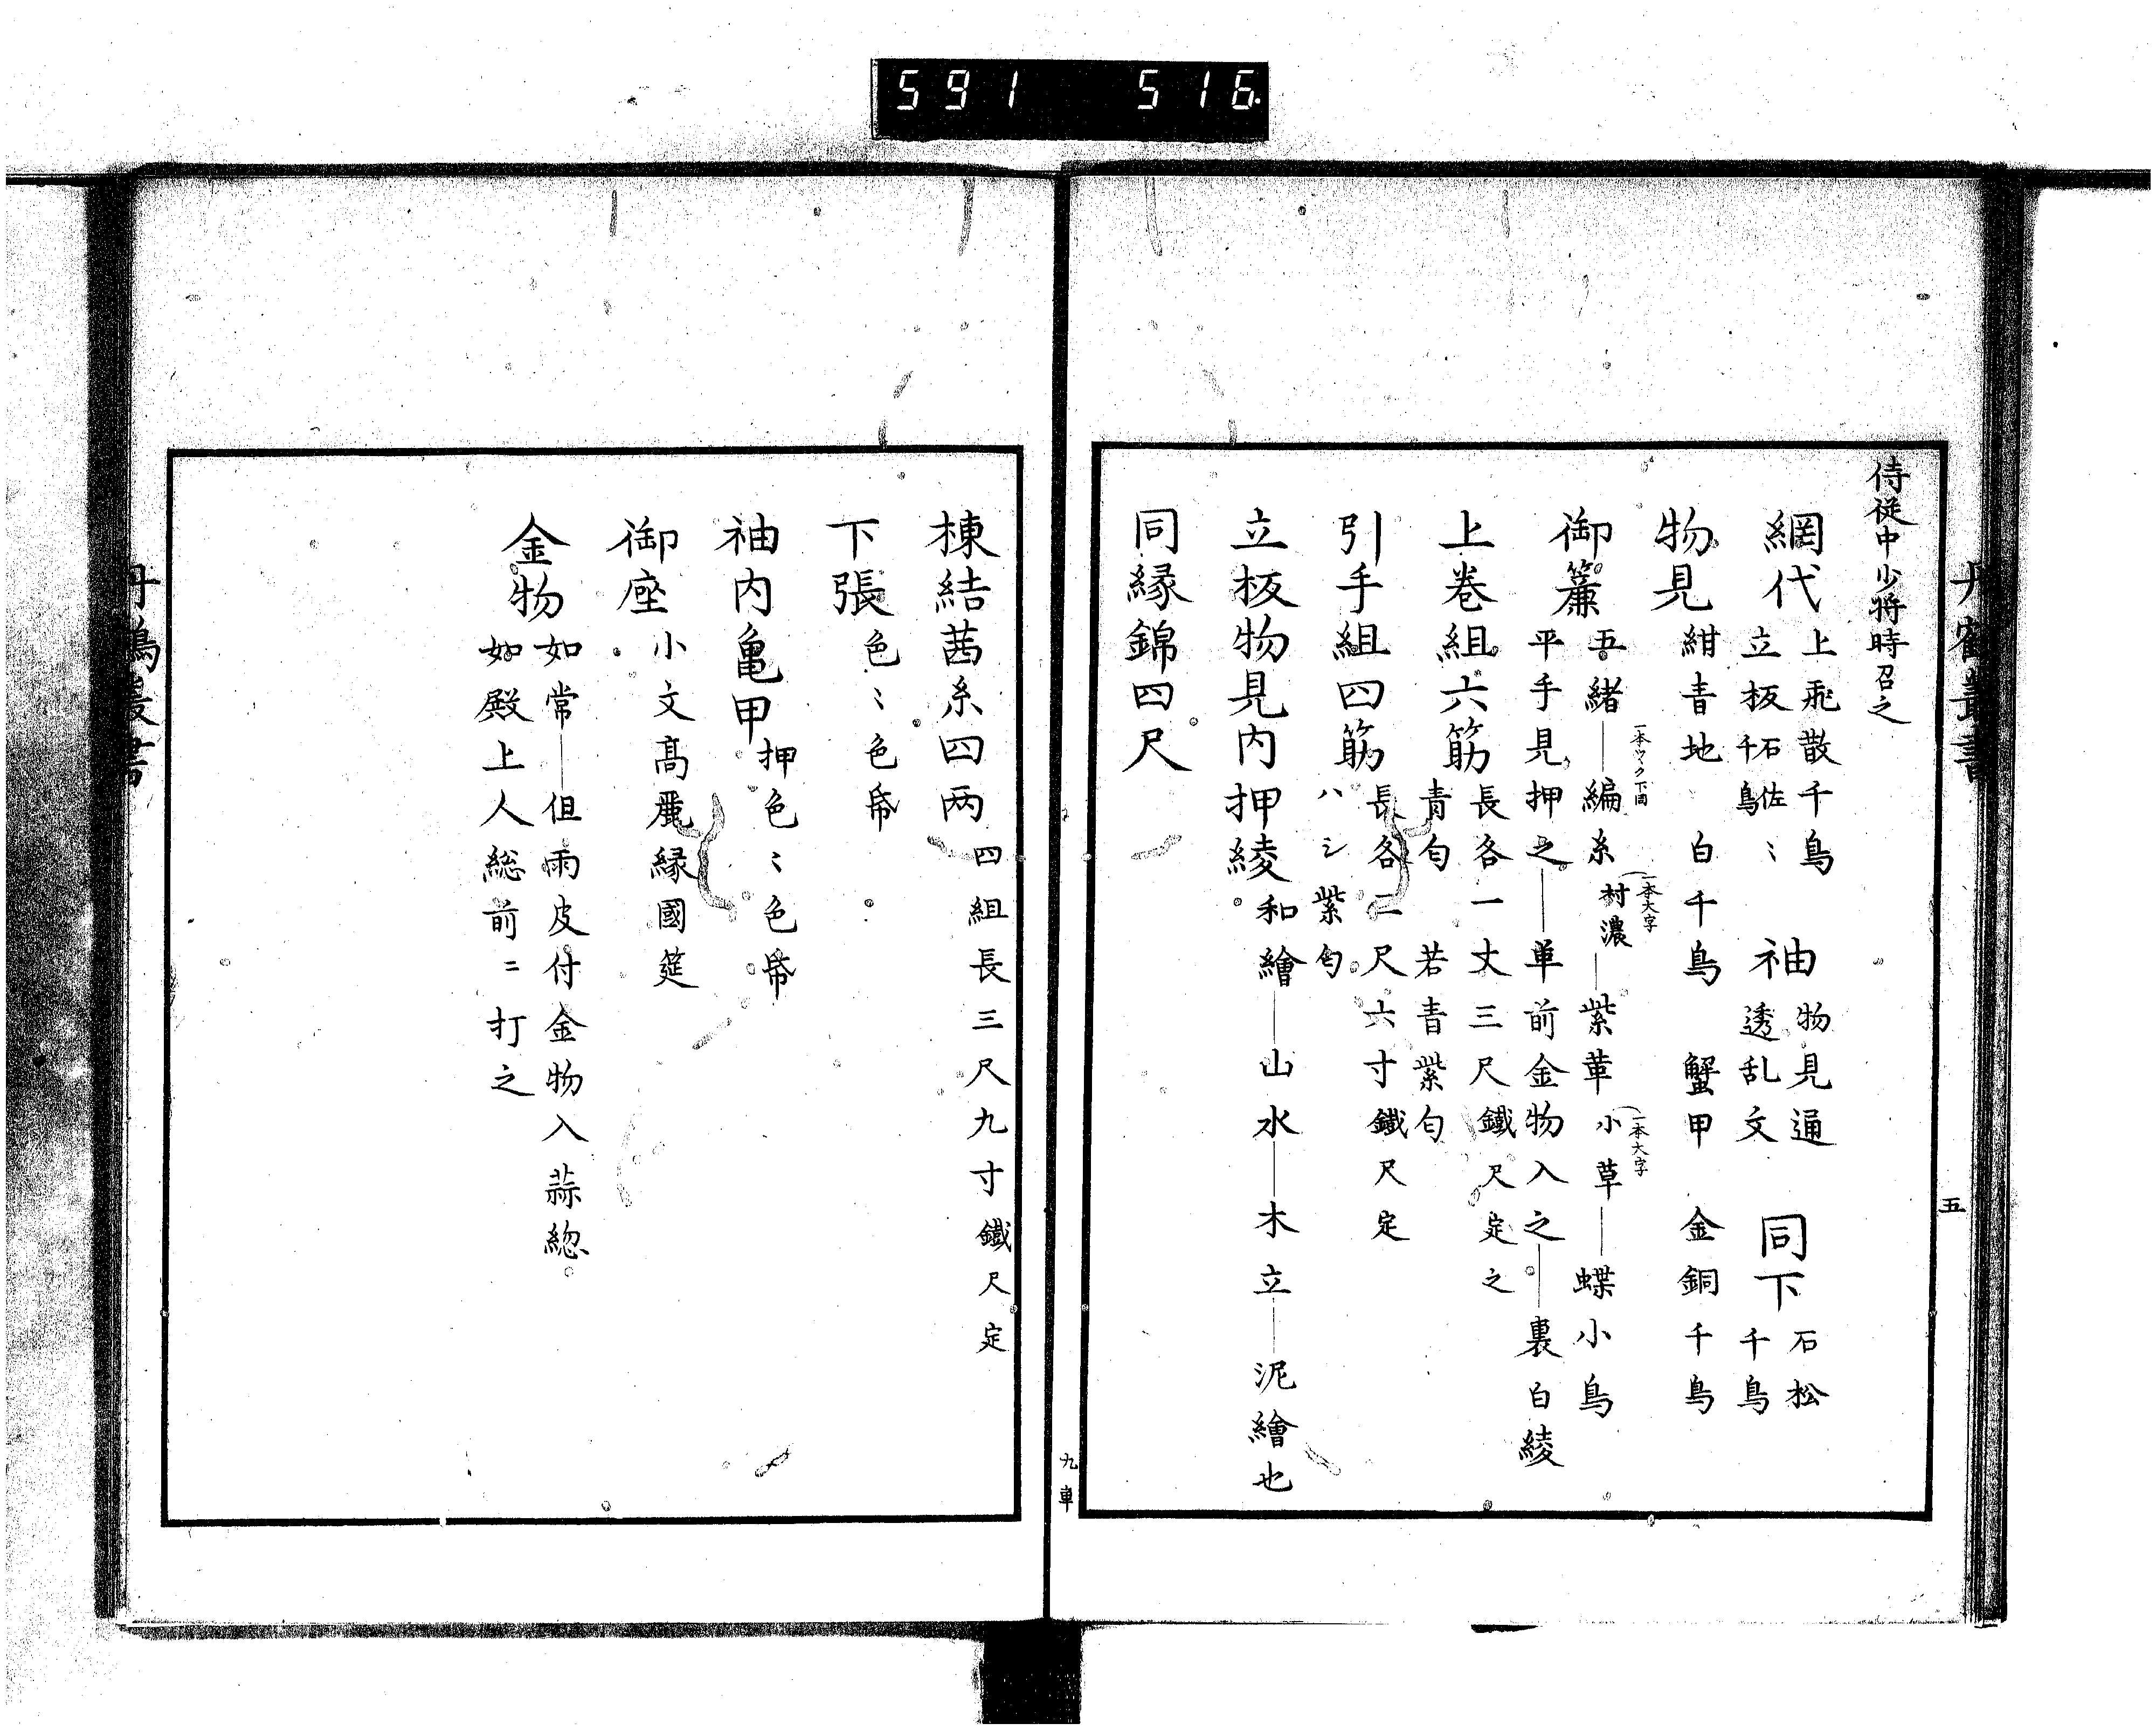 591 516
丹鶴叢書
五
侍従中少将時召之
網代 上飛散千鳥 立板石佐〻千鳥 袖 物見通 透乱文 同下 石松 千鳥
物見 紺青地 白千鳥 蟹甲 金銅千鳥
御簾 五緒―編糸 村濃―紫革 小草―蝶小鳥
一本ツヽク下同
(一本大字
(一本大字
平手見押之―単前金物入之―裏白綾
上巻組六筋 長各一丈三尺鐵尺定之
青匂 若青紫匂
引手組四筋 長各二尺六寸鐵尺定
ハシ紫匂
立板物見内押綾 和繪―山水―木立―泥繪也
同縁錦四尺
九車
棟結茜糸四両 四組長三尺九寸鐵尺定
下張 色〻色帋
袖内亀甲 押色〻色帋
御座 小文高麗縁國筵
金物 如常―但雨皮付金物入蒜総
如殿上人総前ニ打之
丹鶴叢書